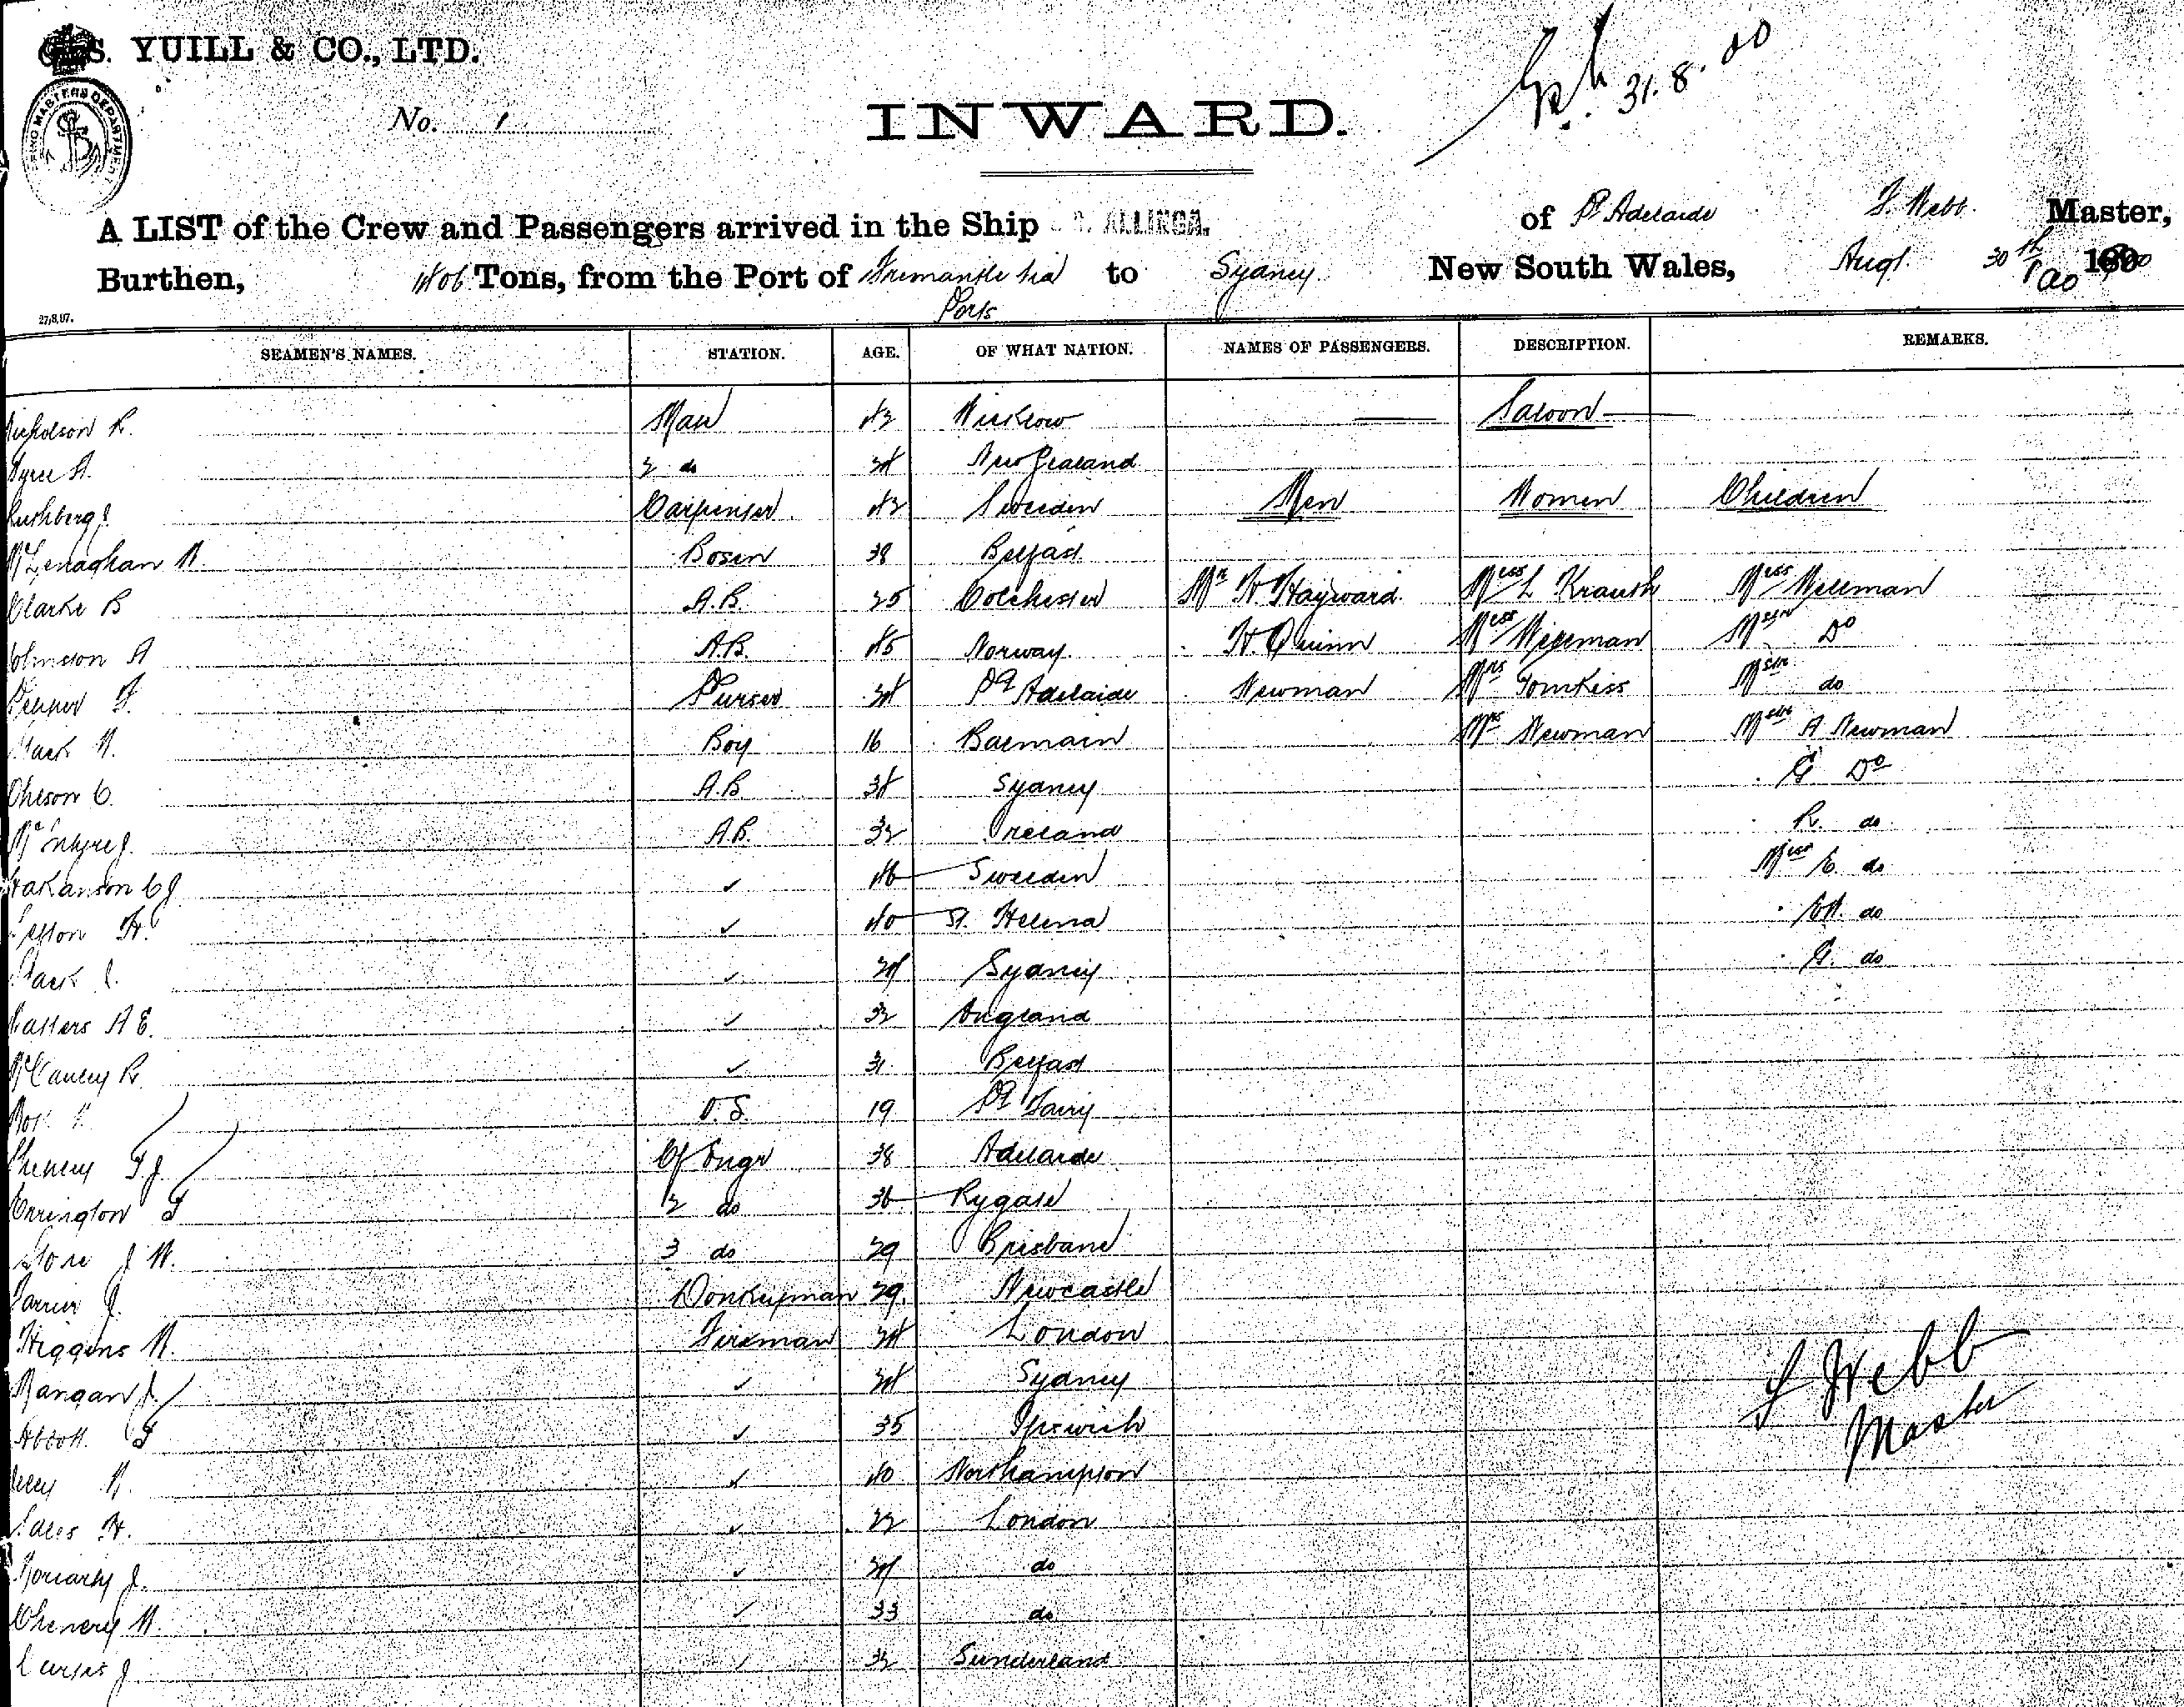 G.S. YUILL & CO., LTD.
31.8.00
No. 1
INWARD.
A LIST of the Crew and Passengers arrived in the Ship S.S. ALLINGA. of Pt Adelaide F. Webb. Master,
Burthen, Tons, from the Port of Fremantle via Ports to Sydney New South Wales, Augt. 30th 1900
27,8,97.
SEAMEN'S NAMES. STATION. AGE. OF WHAT NATION. NAMES OF PASSENGERS. DESCRIPTION. REMARKS.
Nicholson R. Mate 42 Wicklow Saloon
A. 2 do New Zealand
J. Carpenter 42 Sweden Men Women Children
McLenaghan W. Bosen 38 Belfast
Clarke B A.B. 25 Colchester Mr H. Hayward Miss L Krauth Miss Wellman
Johnson A A.B. 45 Norway H. Quinn Miss Mstr Do
F. Purser Pt Adelaide Newman Mrs Tomkiss Mstr do
W. Boy 16 Balmain Mrs Newman Mstr A Newman
Ohlson C. A.B. 34 Sydney G Do
McIntyre J. A.B. 32 Ireland R. do
Hakanson C J. ✓ 46 Sweden Miss C. do
H. ✓ 40 St. Helena W. do
J. ✓ 24 Sydney G. do
A E. ✓ 32 England
McCauley R. ✓ 31 Belfast
O.S. 19 Pt
T J. Cf Engr 38 Adelaide
Errington T 2 do 36
J W. 3 do 29 Brisbane
J. Donkeyman 29. Newcastle
Higgins W. Fireman 24 London
Mangan J. ✓ 24 Sydney
Abbott T ✓ 35 Ipswich
W. ✓ 40 Northampton
H. ✓ 22 London
Moriarty J. ✓ 24 do
Chenery W. ✓ 33 do
Curtis J. ✓ 32 Sunderland
F Webb
Master